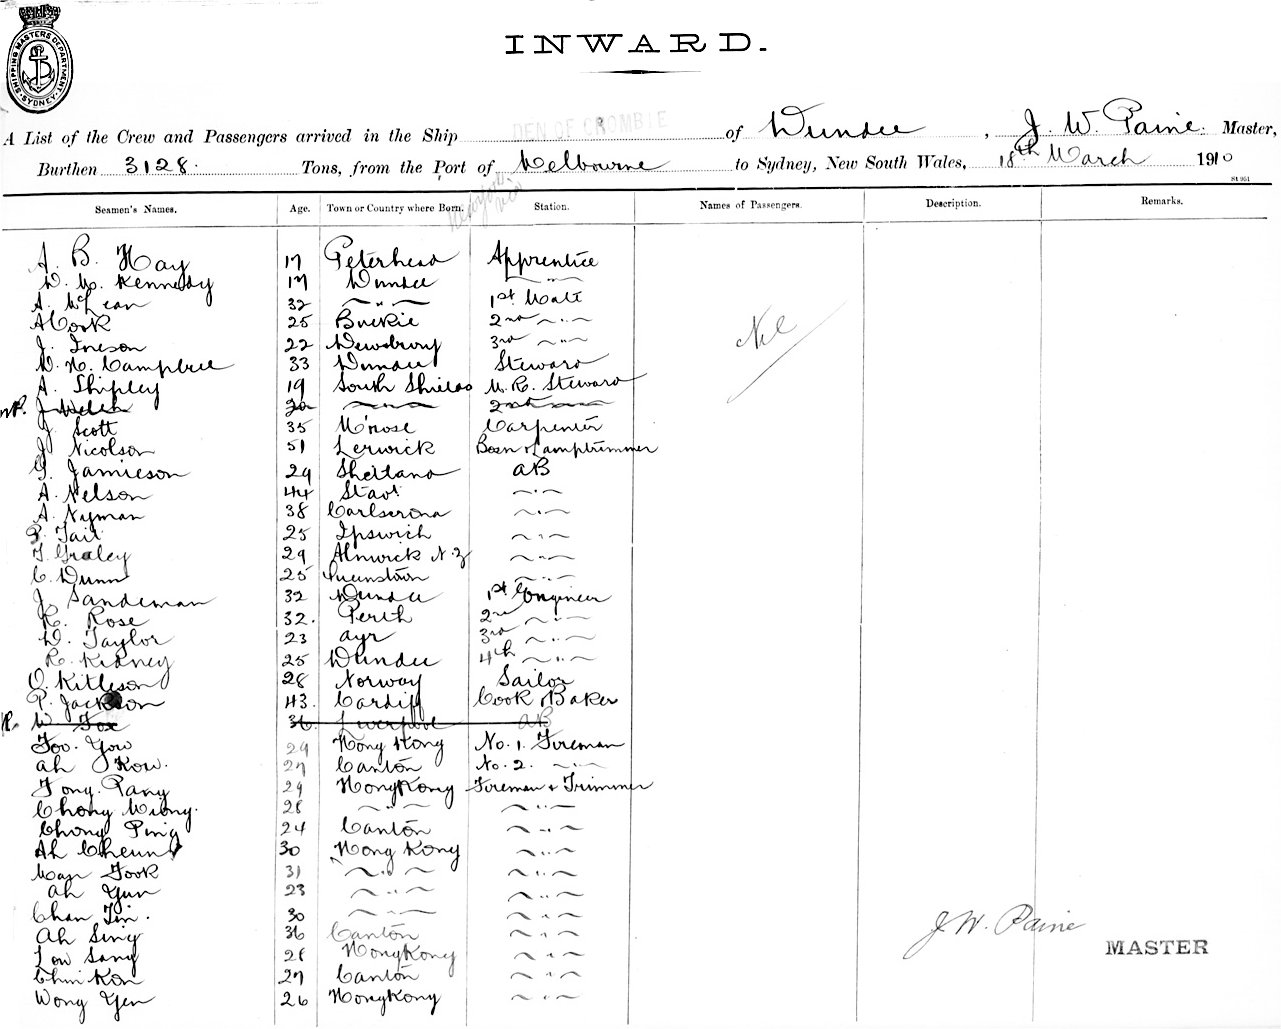 SHIPPING MASTERS DEPARTMENT SYDNEY
INWARD.
A List of the Crew and Passengers arrived in the Ship DEN OF CROMBIE of Dundee, J. W. Paine. Master,
Burthen 3128. Tons, from the Port of Melbourne to Sydney, New South Wales, 18th March 1910
Seamen's Names. Age. Town or Country where Born. Station. Names of Passengers. Description. Remarks.
A. B. Hay 17 Peterhead Apprentice
Kennedy 17 Dundee " 
A. McLean 32 " 1st Mate
A Cook 25 Buckie 2nd "
J. Ireson 22 3rd "
Nil
Campbell 33 Dundee Steward
A. Shipley 19 South Shields M. R. Steward
J. " 2nd "
J. Scott 35 M'rose Carpenter
J. Nicolson 51 Lerwick Bosn & Lamptrimmer
G. Jamieson 29 Shetland AB
A. Nelson 44 "
A. Nyman 38 Carlscrona "
P. Tait 25 Ipswich "
T. Graley 29 Alnwick N.Z "
C. Dunn 25 Queenstown "
J. Sandeman 32 Dundee 1st Engineer
R. Rose 32. Perth 2nd "
D. Taylor 23 Ayr 3rd "
R. Kidney 25 Dundee 4th "
O. Kittleson 28 Norway Sailor
P. Jackson 43. Cardiff Cook & Baker
W. Fox 36. Liverpool AB
Foo. Yow 29 Hong Kong No. 1. Fireman
Ah Kow. 27 Canton No. 2. "
Fong. Pang 29 HongKong Fireman & Trimmer
Chong Wong. 28 " "
Chong Ping 24 Canton "
Ah Cheung 30 Hong Kong "
Fook 31 " "
Ah Yun 23 " "
Chan Tin. 30 " "
Ah Sing 36 Canton "
J. W. Paine
MASTER
Low Sang HongKong "
Chin Kon 27 Canton "
Wong Yen 26 HongKong "